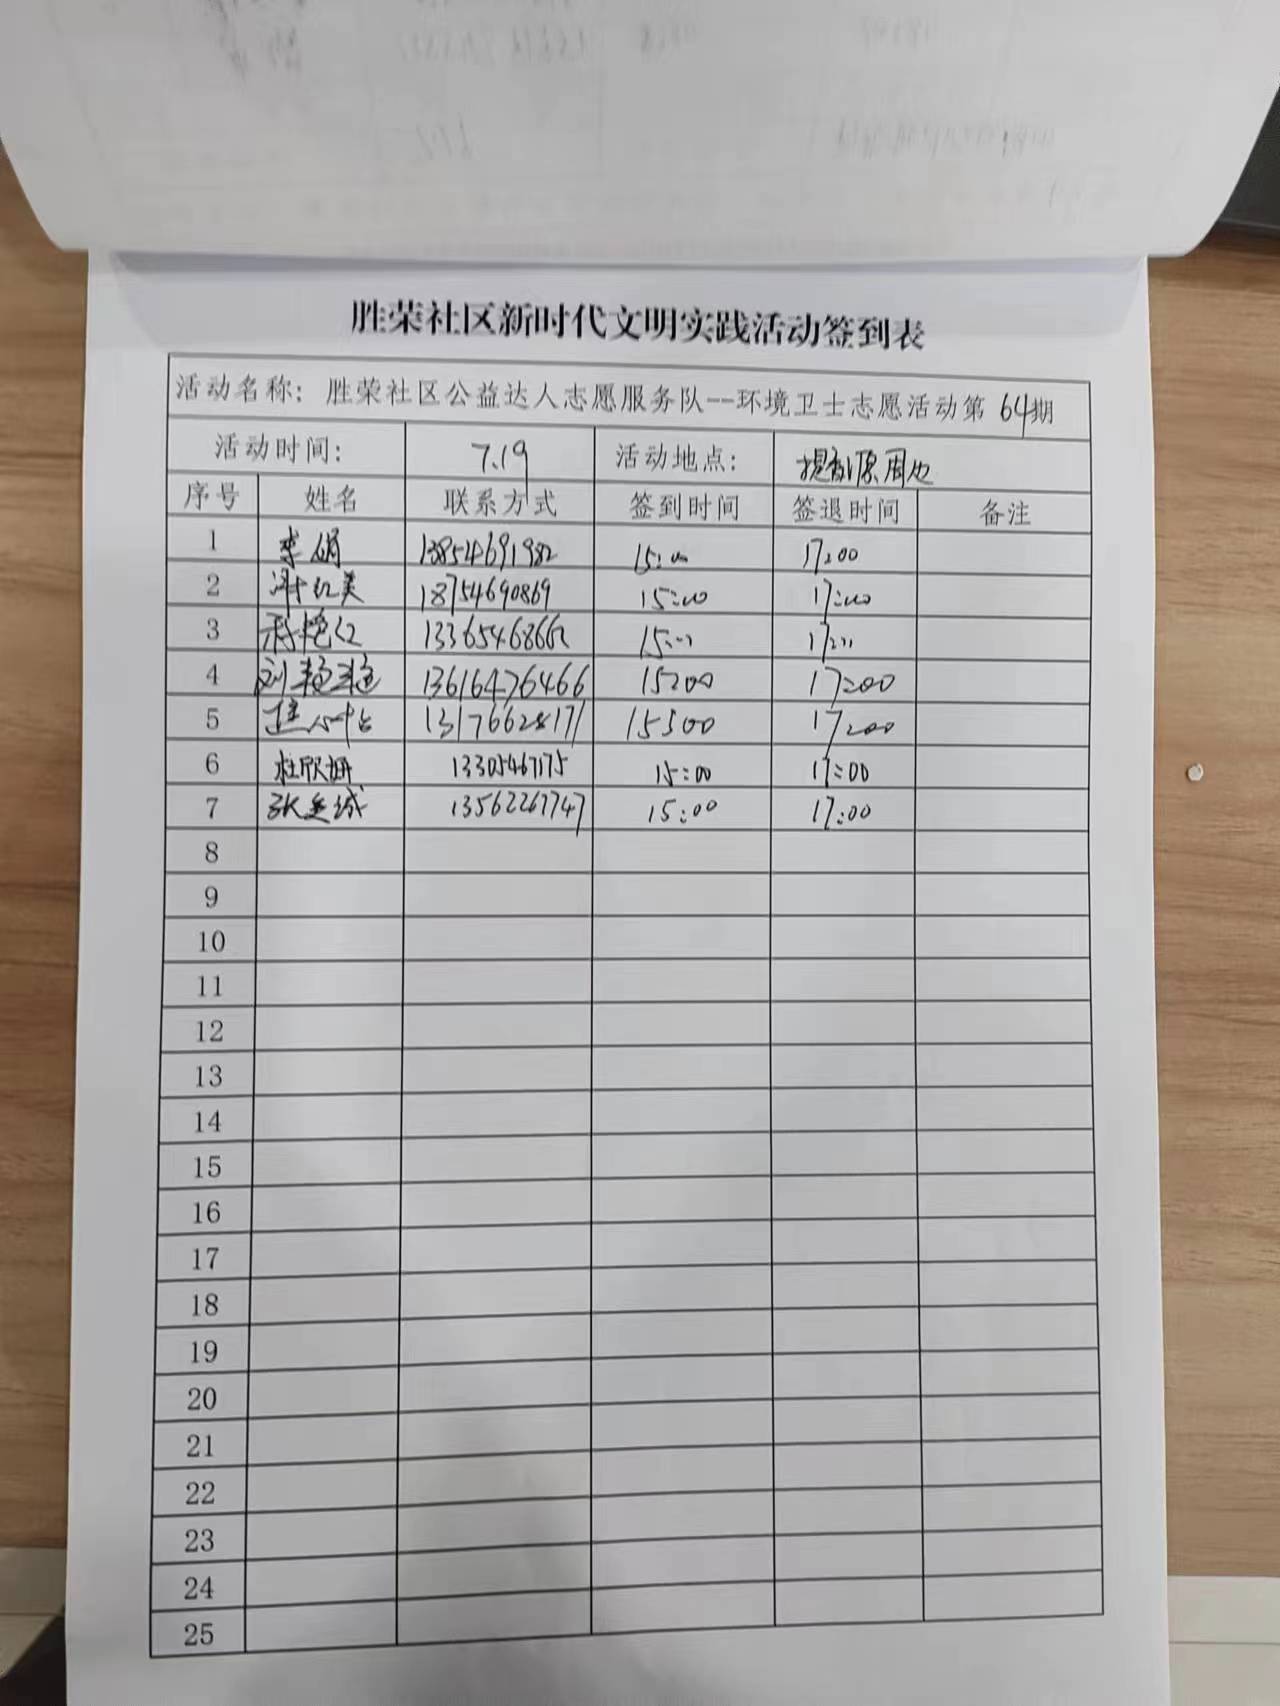 胜荣社区新时代文明实践活动签到表
活动名称：胜荣社区公益达人志愿服务队--环境卫士志愿活动第 64期
活动时间： 7.19 活动地点： 周边
序号 姓名 联系方式 签到时间 签退时间 备注
1 李娟 13854691982 15:00 17:00
2 红美 18754690869 15:00 17:00
3 艳红 15:00 17:00
4 刘艳艳 13616476466 15:00 17:00
5 15:00 17:00
6 杜欣妍 13305467175 15:00 17:00
7 张 城 13562267747 15:00 17:00
8
9
10
11
12
13
14
15
16
17
18
19
20
21
22
23
24
25